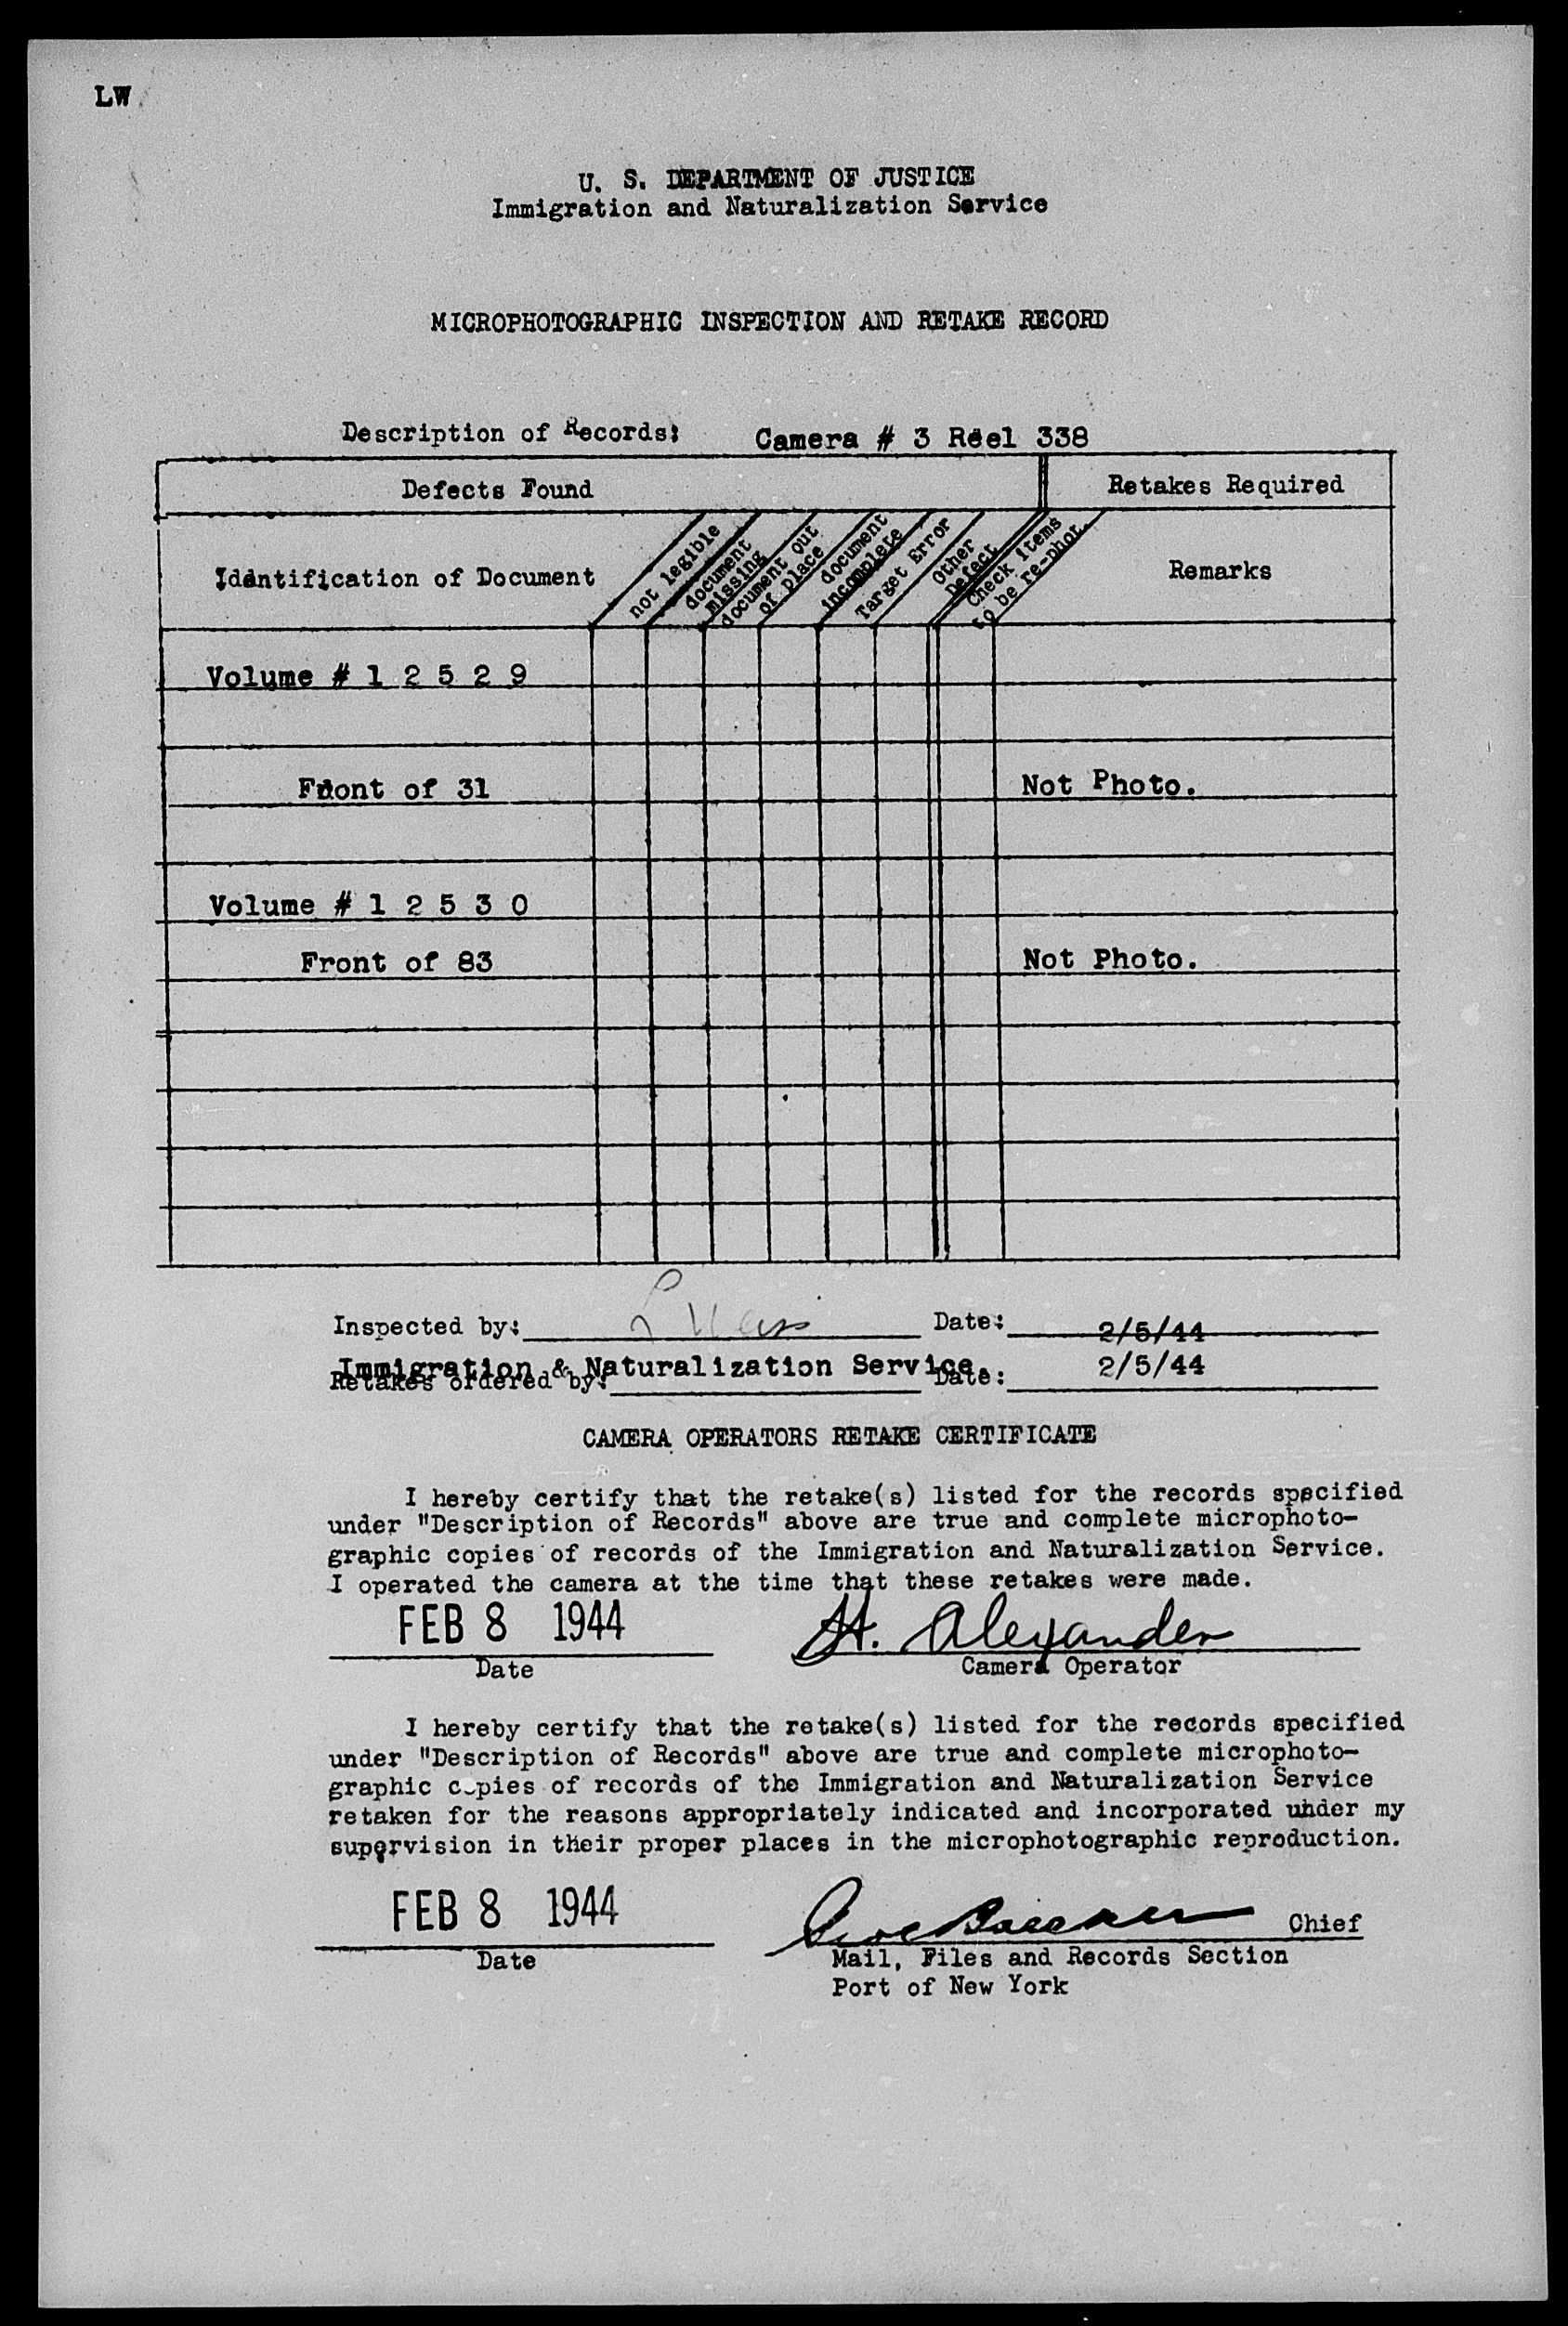 LW
U. S. DEPARTMENT OF JUSTICE
Immigration and Naturalization Service
MICROPHOTOGRAPHIC INSPECTION AND RETAKE RECORD
Description of Records: Camera # 3 Reel 338
Defects Found Retakes Required
Identification of Document
not legible
document missing
document out of place
document incomplete
Target Error
Other Defect
Check items to be re-phot.
Remarks
Volume # 1 2 5 2 9
Front of 31 Not Photo.
Volume # 1 2 5 3 0
Front of 83 Not Photo.
Inspected by: Date: 2/5/44
Immigration & Naturalization Service.
Retakes ordered by: Date: 2/5/44
CAMERA OPERATORS RETAKE CERTIFICATE
I hereby certify that the retake(s) listed for the records specified
under "Description of Records" above are true and complete microphoto-
graphic copies of records of the Immigration and Naturalization Service.
I operated the camera at the time that these retakes were made.
FEB 8 1944 H. Alexander
Date Camera Operator
I hereby certify that the retake(s) listed for the records specified
under "Description of Records" above are true and complete microphoto-
graphic copies of records of the Immigration and Naturalization Service
retaken for the reasons appropriately indicated and incorporated under my
supervision in their proper places in the microphotographic reproduction.
FEB 8 1944 Chief
Date Mail, Files and Records Section
Port of New York